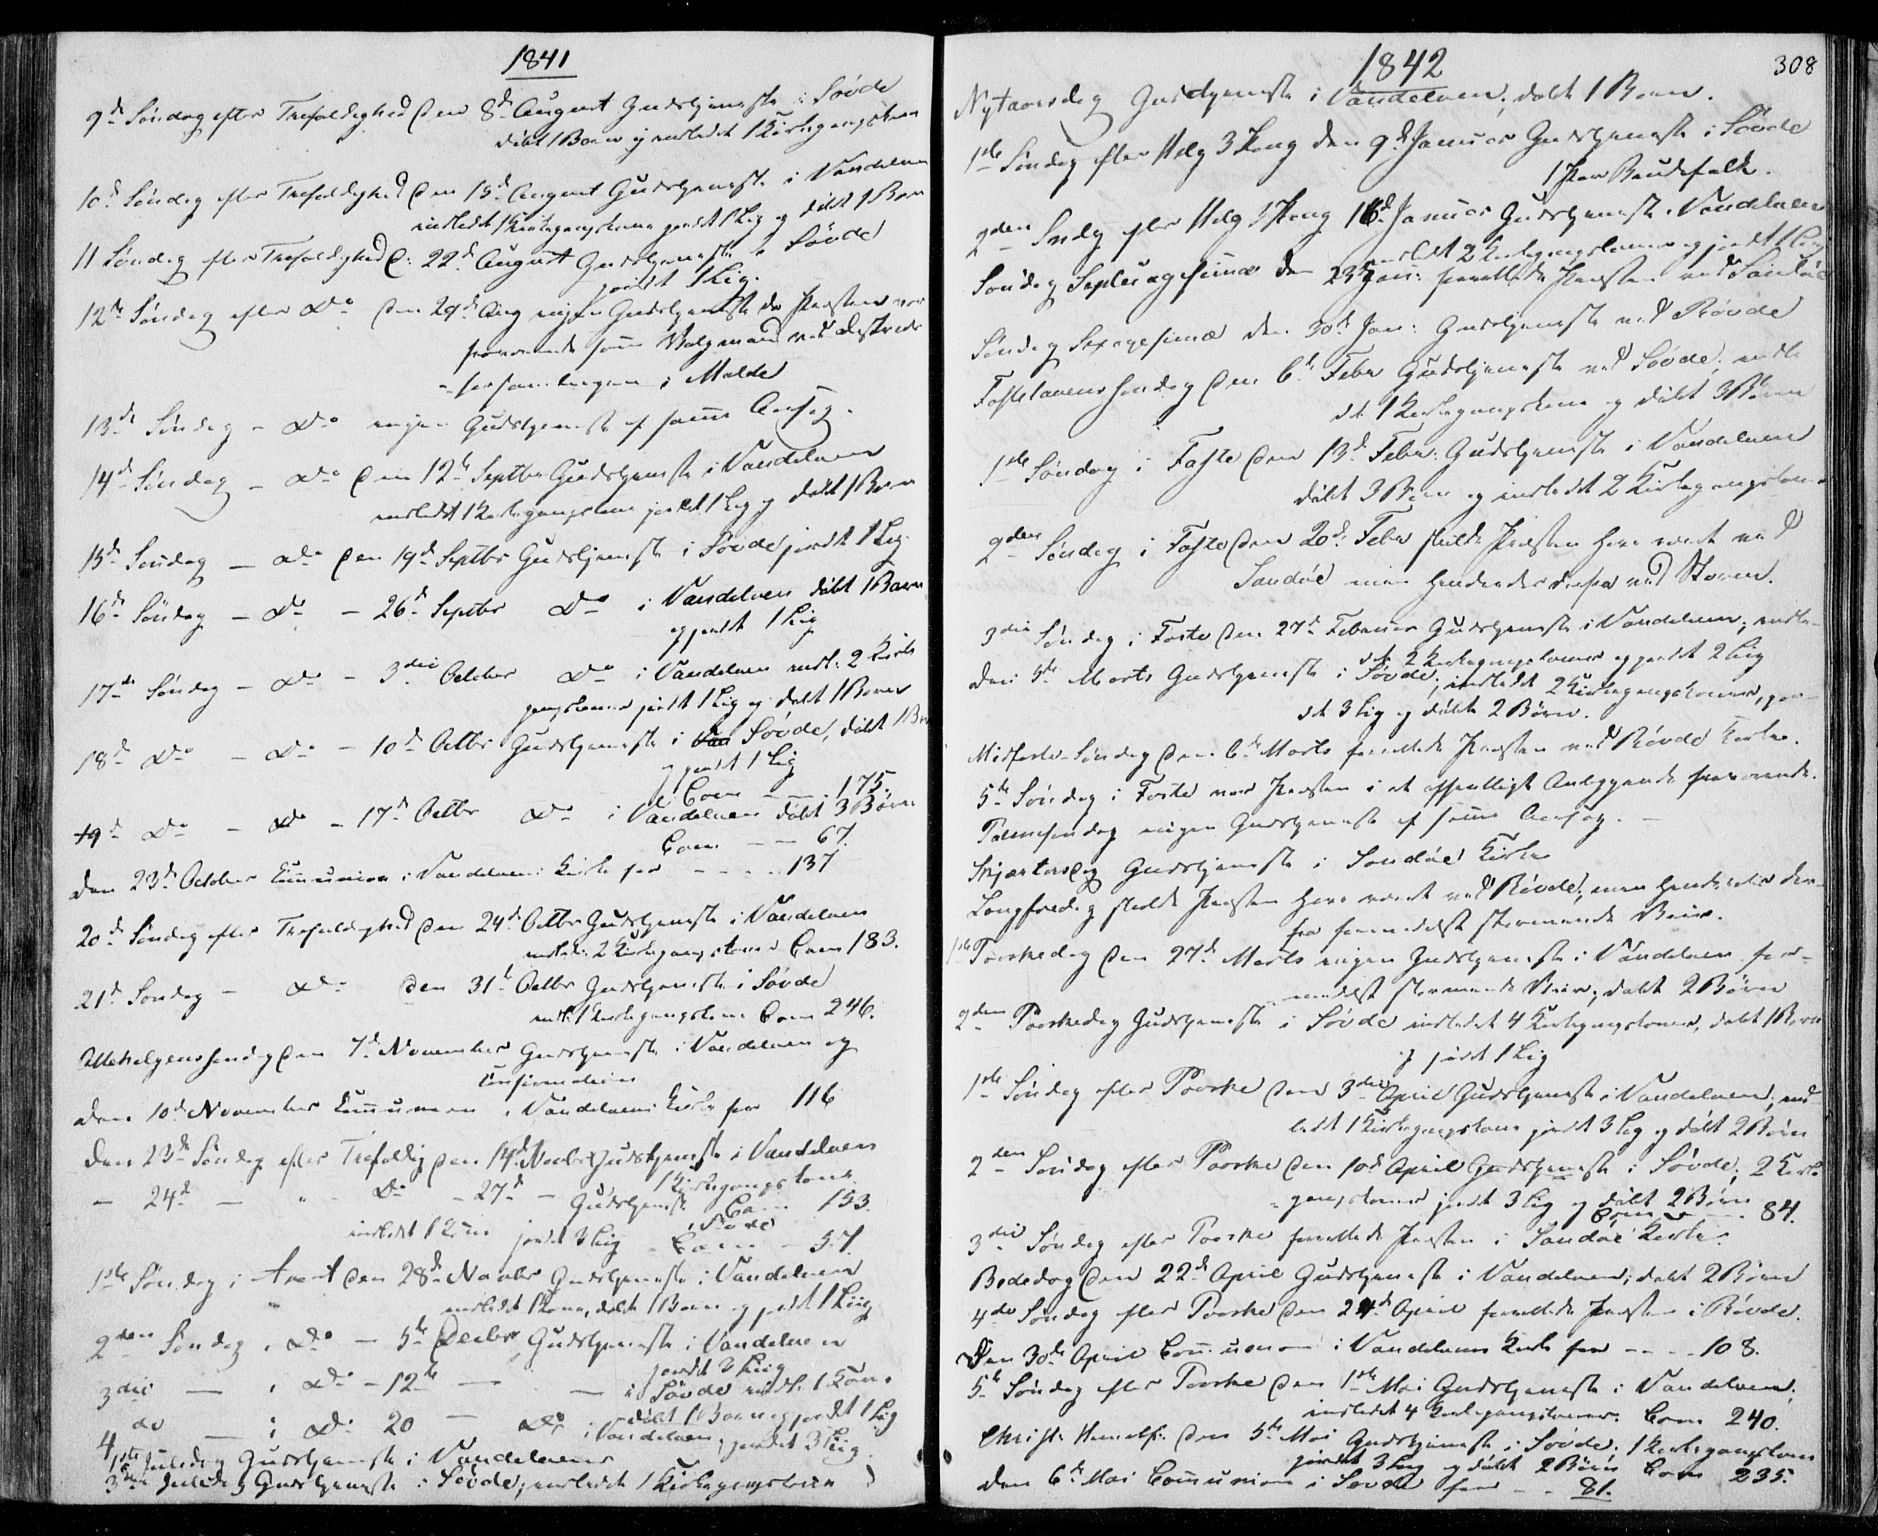 1841
9de Søndag efter Trefoldighed den 8de August Gudstjeneste i Søvde
døbt 1 Barn og indledet 1 Kirkegangskone
10de Søndag efter Trefoldighed den 15de August Gudstjeneste i Vandelven
indledet 1 Kirkegangskone jordet 1 Lig og døbt 1 Barn
11 Søndag efter Trefoldighed d: 22de August Gudstjeneste i Søvde
jordet 1 Lig.
12te Søndag efter Do den 29de Aug ingen Gudstjeneste da Præsten var
fraværende som Valgmand ved Districts
-forsamlingen i Molde
13de Søndag - Do ingen Gudstjeneste af samme Aarsag.
14de Søndag - Do den 12te Septbr Gudstjeneste i Vandelven
indledet 1 Kirkegangskone jordet 1 Lig og døbt 1 Barn
15de Søndag - Do den 19de Septbr Gudstjeneste i Søvde jordet 1 Lig.
16de Søndag - Do - 26de Septbr Do i Vandelven døbt 1 Barn
og jordet 1 Lig
17de Søndag - Do - 3die October Do i Vandelven indl: 2 Kirke
gangskoner jordet 1 Lig og døbt 1 Barn
18de Do - Do - 10de Octbr Gudstjeneste i Van Søvde, døbt 1 Barn
og jordet 1 Lig
Com - - 175.
19de Do - Do - 17de Octbr Do i Vandelven døbt 3 Børn
Com - - 67.
Den 23de October Communion i Vandelvens Kirke for - - - - 137
20de Søndag efter Trefoldighed den 24de Octbr Gudstjeneste i Vandelven
indledt: 2 Kirkegangskoner Com 183.
21de Søndag - Do den 31te Octbr Gudstjeneste i Søvde
indl: 1 Kirkegangskone Com 246.
Allehelgens søndag den 7de November Gudstjeneste i Vandelven og
Confirmation
Den 10de November Communion i Vandelvens Kirke for 116
Den 23de Søndag efter Trefoldig den 14de Novbr Gudstjeneste i Vandelven
1 Kirkegangskone
- 24de - " - Do - 27de - Gudstjeneste Com 153.
i Søvde
indledet 1 Kone jordet 3 Lig - Com - 57.
1ste Søndag i Avent den 28de Novbr Gudstjeneste i Vandelven
indledet 1 Kone, døbt 1 Barn og jordet 1 Liig
2den Søndag i Do - 5te Decbr Gudstjeneste i Vandelven
jordet 3 Liig
3die - i Do - 12te - - i Søvde indl. 1 Kone
døbt 1 Barn og jordet 1 Lig
4de - i Do 20 - Do i Vandelven, jordet 3 Liig.
1ste Juledag Gudstjeneste i Vandelven
3die Juledag Gudstjeneste i Søvde, indledet 1 Kirkegangskone
1842
308
Nytaarsdag Gudstjeneste i Vandelven, døbt 1 Barn.
1ste Søndag efter Helg 3 Kong den 9de Januar Gudstjeneste i Søvde
1 Par Brudefolk.
2den Søndg efter Helg 3 Kong 16de Januar Gudstjeneste i Vandelven
indledet 2 Kirkegangskoner og jordet 1 Lig
Søndag Septuagesima den 23de Jan: forrettede Præsten ved Sandøe
Søndag Sexagesima den 30te Jan: Gudstjeneste ved Røvde
Fastelavens søndag den 6te Febr Gudstjeneste ved Søvde, indle
det 1 Kirkegangskone og døbt 3 Børn
1ste Søndag i Faste den 13de Febr: Gudstjeneste i Vandelven
døbt 3 Børn og indledet 2 Kirkegangskoner
2den Søndag i Faste den 20de Febr skulde Præsten have været ved
Sandøe men hindredes derfra ved Storm.
3die Søndag i Faste den 27de Februar Gudstjeneste i Vandelven, indle-
det 2 Kirkegangskoner og jordet 2 Liig
Den 5te Marts Gudstjeneste i Søvde, indledet 2 Kirkegangskoner, jor-
det 3 Lig og døbt 2 Børn.
Midfaste-Søndag den 6te Marts forrettede Præsten ved Røvde Kirke.
5te Søndag i Faste var Præsten i et offentligt Anliggende fraværende.
Palmesøndag ingen Gudstjeneste af samme Aarsag. -
Skjærtorsdag Gudstjeneste i Sandøe Kirke
Langfredag skulde Præsten have været ved Røvde, men hindredes der-
fra formedelst stormende Veir.
1ste Paaskedag den 27de Marts ingen Gudstjeneste i Vandelven for-
medelst stormende Veir, døbt 2 Børn
2den Paaskedag Gudstjeneste i Søvde indledet 4 Kirkegangskoner, døbt 1 Barn
og jordet 1 Lig
1ste Søndag efter Paaske den 3die April Gudstjeneste i Vandelven, ind-
ledet 1 Kirkegangskone jordet 3 Lig og døbt 2 Børn
2den Søndag efter Paaske den 10de April Gudstjeneste i Søvde, 2 Kirke
-gangskoner jordet 3 Lig og døbt 2 Børn
Com - - 84.
3die Søndag efter Paaske forrettede Præsten i Sandøe Kirke.
Bededag den 22de April Gudstjeneste i Vandelven, døbt 2 Børn
4de Søndag efter Paaske den 24de April forrettede Præsten i Røvde.
Den 30te April Communion i Vandelvens Kirke for - - - - 108.
5te Søndag efter Paaske den 1ste Mai Gudstjeneste i Vandelven,
indledet 4 Kirkegangskoner. Com 240.
Christi Himelf. den 5te Mai Gudstjeneste i Søvde. 1 Kirkegangskone
jordet 3 Lig og døbt 2 Børn Com 235.
Den 6te Mai Communion i Søvde for - - 81.